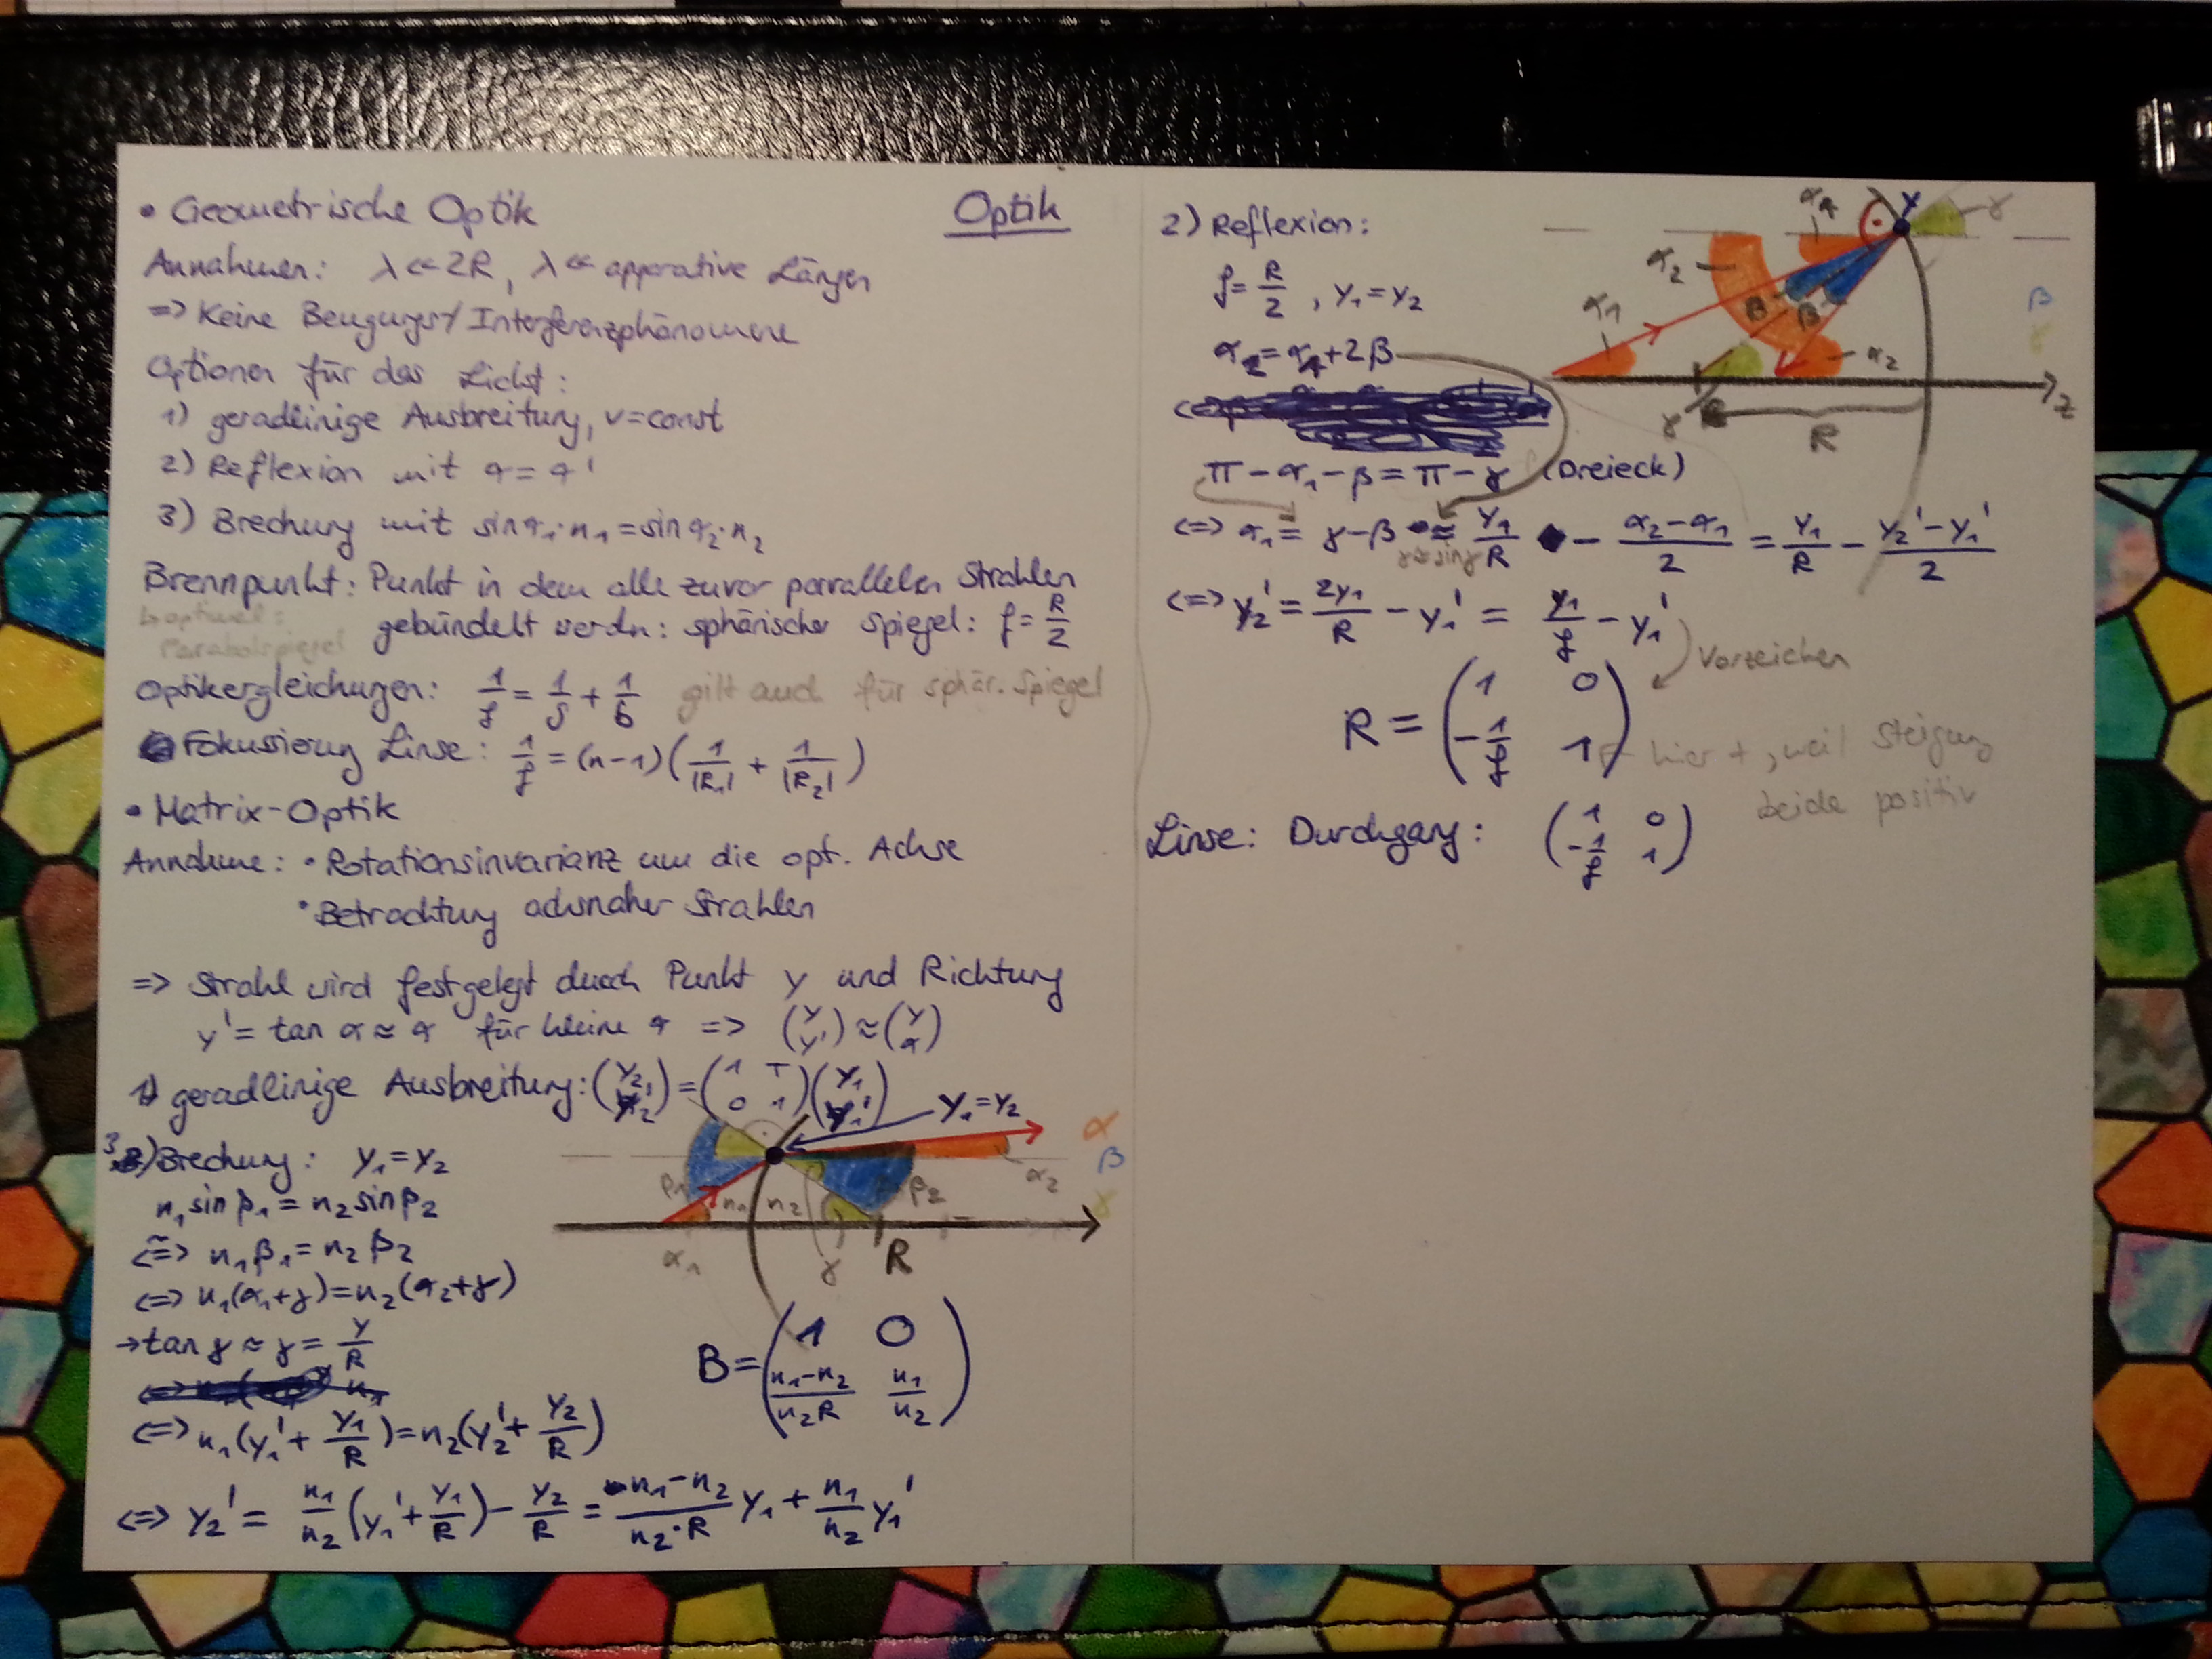 • Geometrische Optik
Optik
Annahmen: λ << 2R, λ << apparative Längen
=> Keine Beugungs/Interferenzphänomene
Optionen für das Licht:
1) geradlinige Ausbreitung, v=const
2) Reflexion mit α = α'
3) Brechung mit sin α₁·n₁ = sin α₂·n₂
Brennpunkt: Punkt in dem alle zuvor parrallelen Strahlen
gebündelt werdn: sphärischer Spiegel: f = R/2
↳ optimal:
Parabolspiegel
Optikergleichungen: 1/f = 1/g + 1/b gilt auch für sphär. Spiegel
Fokussierung Linse: 1/f = (n-1)(1/|R₁| + 1/|R₂|)
• Matrix-Optik
Annahme: • Rotationsinvarianz um die opt. Achse
• Betrachtung achsnaher Strahlen
=> Strahl wird festgelegt durch Punkt y und Richtung
y' = tan α ≈ α für kleine α => (y y') ≈ (y α)
1) geradlinige Ausbreitung: (y₂ y₂') = (1 T 0 1)(y₁ y₁')
3) Brechung: y₁ = y₂
n₁ sin β₁ = n₂ sin β₂
<=> n₁β₁ = n₂β₂
<=> n₁(α₁+γ) = n₂(α₂+γ)
→ tan γ ≈ γ = y/R
<=> n₁(y₁' + y₁/R) = n₂(y₂' + y₂/R)
<=> y₂' = n₁/n₂ (y₁' + y₁/R) - y₂/R = (n₁-n₂)/(n₂·R) y₁ + n₁/n₂ y₁'
y₁ = y₂
α
β
γ
β₁
n₁
n₂
β₂
α₂
α₁
γ
R
B = (1 0 (n₁-n₂)/(n₂R) n₁/n₂)
2) Reflexion:
f = R/2, y₁ = y₂
α₂ = α₁ + 2β
π - α₁ - β = π - γ (Dreieck)
<=> α₁ = γ - β ≈ y₁/R - (α₂-α₁)/2 = y₁/R - (y₂'-y₁')/2
γ ≈ sin γ
<=> y₂' = 2y₁/R - y₁' = y₁/f - y₁'
Vorzeichen
R = (1 0 -1/f 1)
← hier +, weil Steigung
beide positiv
Linse: Durchgang: (1 0 -1/f 1)
α₁
y
γ
α₂
α₁
β
β
α₂
γ
R
z
β
γ